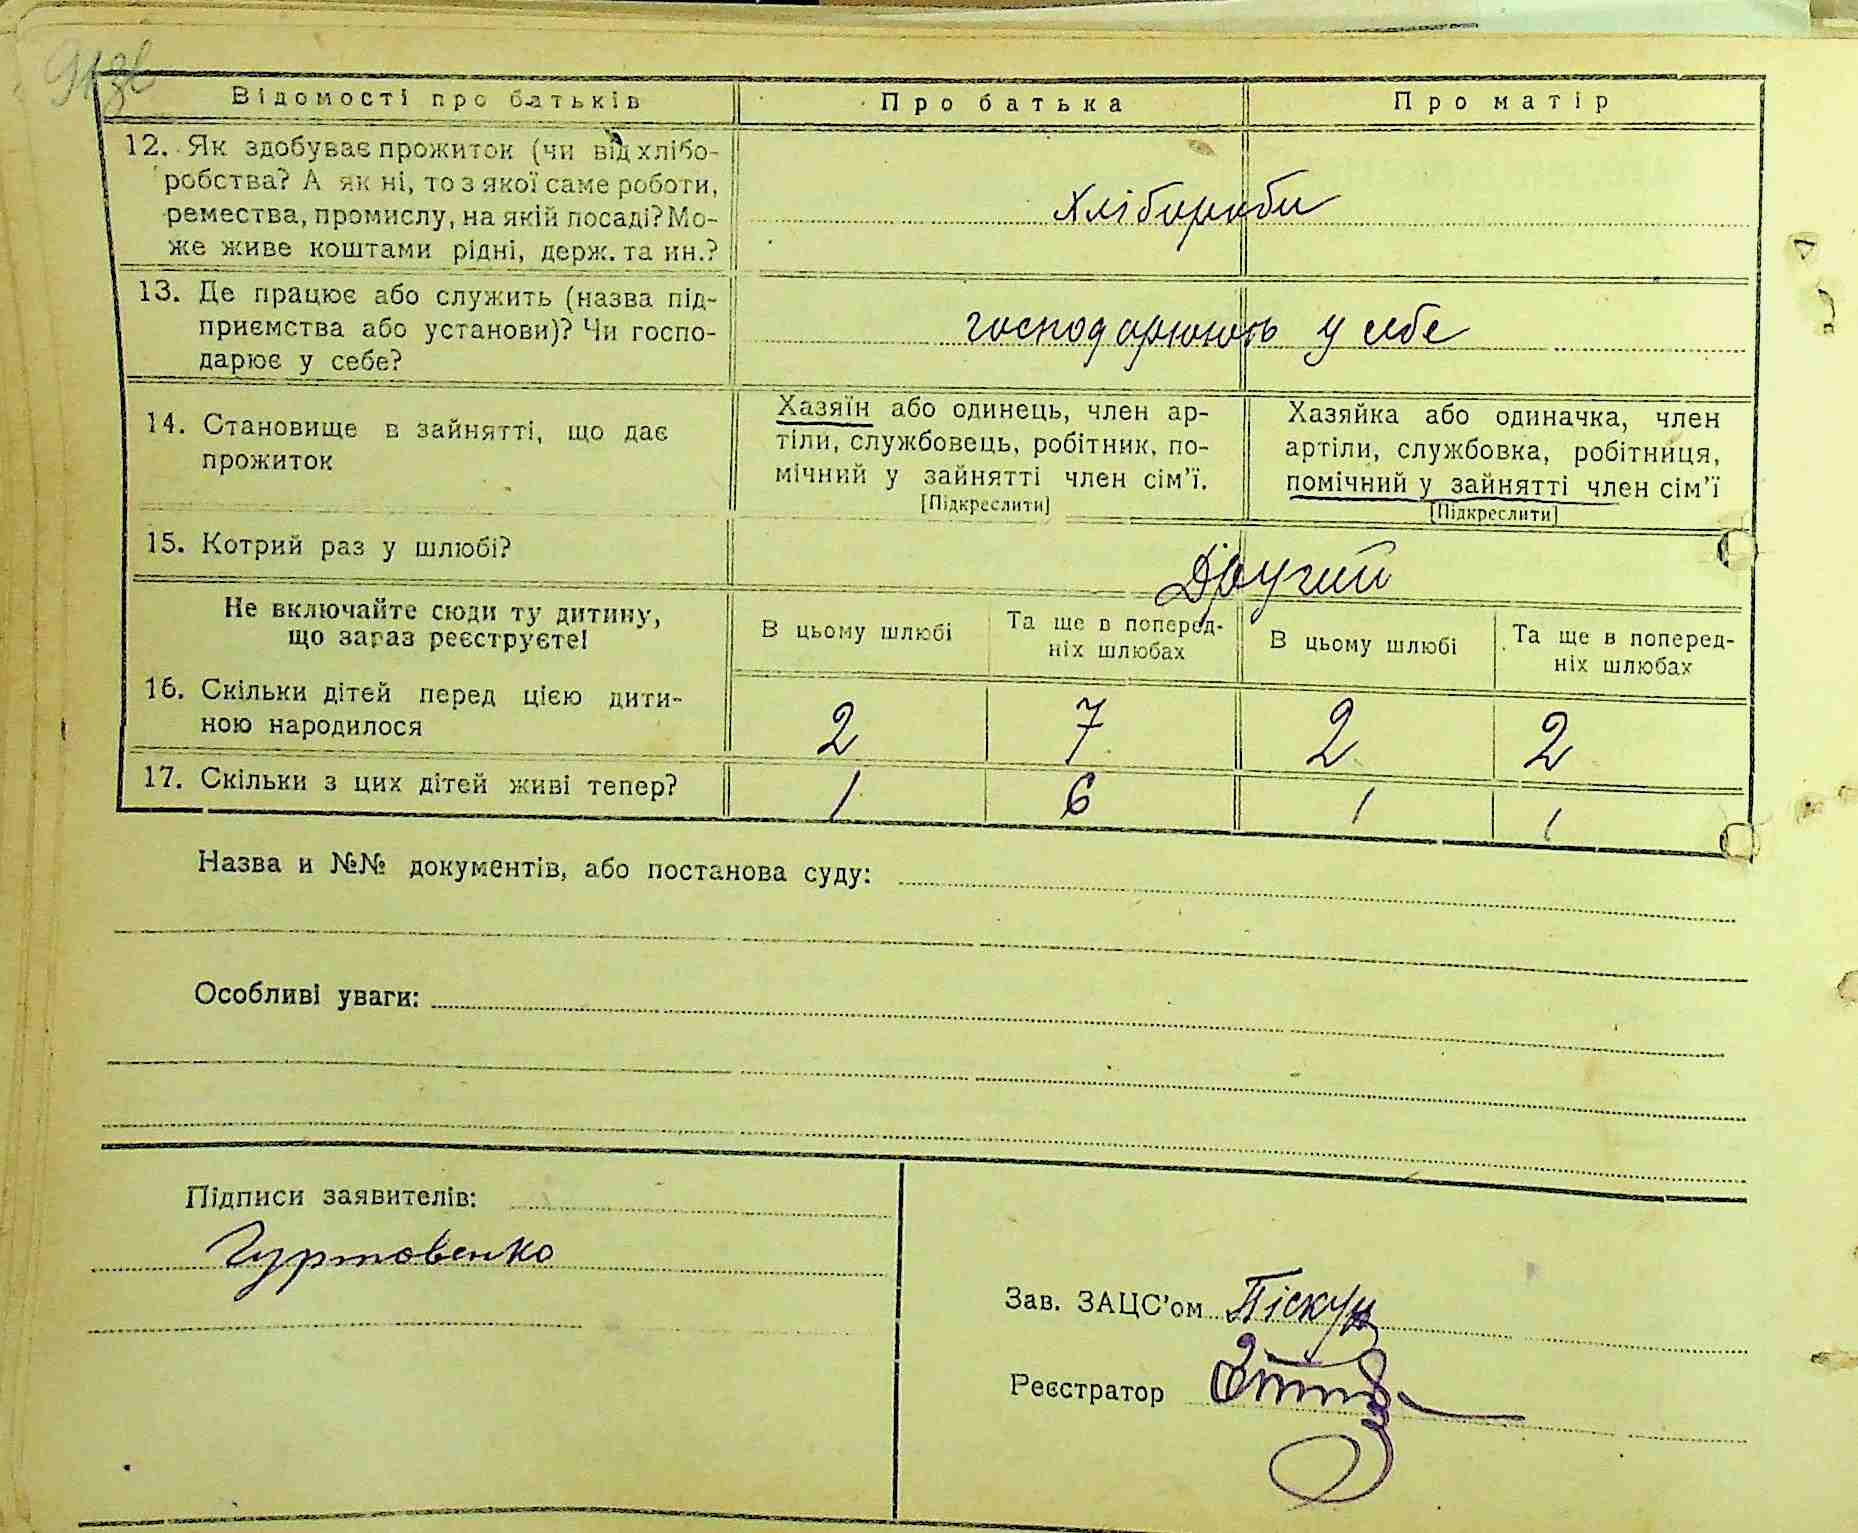 91зв
Відомості про батьків
Про батька
Про матір
12. Як здобуває прожиток (чи від хлібо-
робства? А як ні, то з якої саме роботи,
ремества, промислу, на якій посаді? Мо-
же живе коштами рідні, держ. та ин.?
Хлібороби
13. Де працює або служить (назва під-
приємства або установи)? Чи госпо-
дарює у себе?
господарюють у себе
14. Становище в зайнятті, що дає
прожиток
Хазяїн або одинець, член ар-
тіли, службовець, робітник, по-
мічний у зайнятті член сім’ї.
[Підкреслити]
Хазяйка або одиначка, член
артіли, службовка, робітниця,
помічний у зайнятті член сім’ї
[Підкреслити]
15. Котрий раз у шлюбі?
Другий
Не включайте сюди ту дитину,
що зараз реєструєте!
В цьому шлюбі
Та ще в поперед-
ніх шлюбах
В цьому шлюбі
Та ще в поперед-
ніх шлюбах
16. Скільки дітей перед цією дити-
ною народилося
2 7 2 2
17. Скільки з цих дітей живі тепер?
1 6 1 1
Назва и №№ документів, або постанова суду:
Особливі уваги:
Підписи заявителів:
Гуртовенко
Зав. ЗАЦС’ом Піскун
Реєстратор